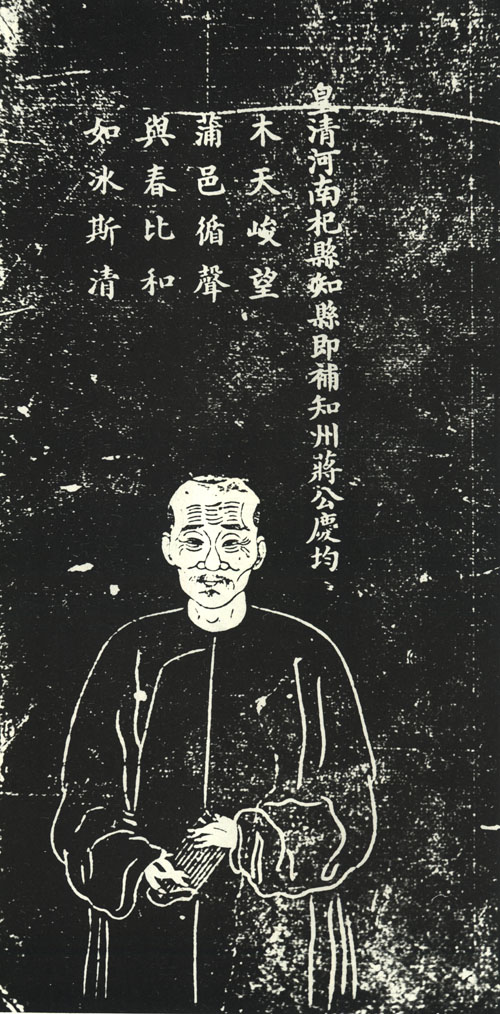 皇清河南杞縣知縣即補知州蔣公慶均
木天峻望
蒲邑循聲
與春比和
如冰斯清